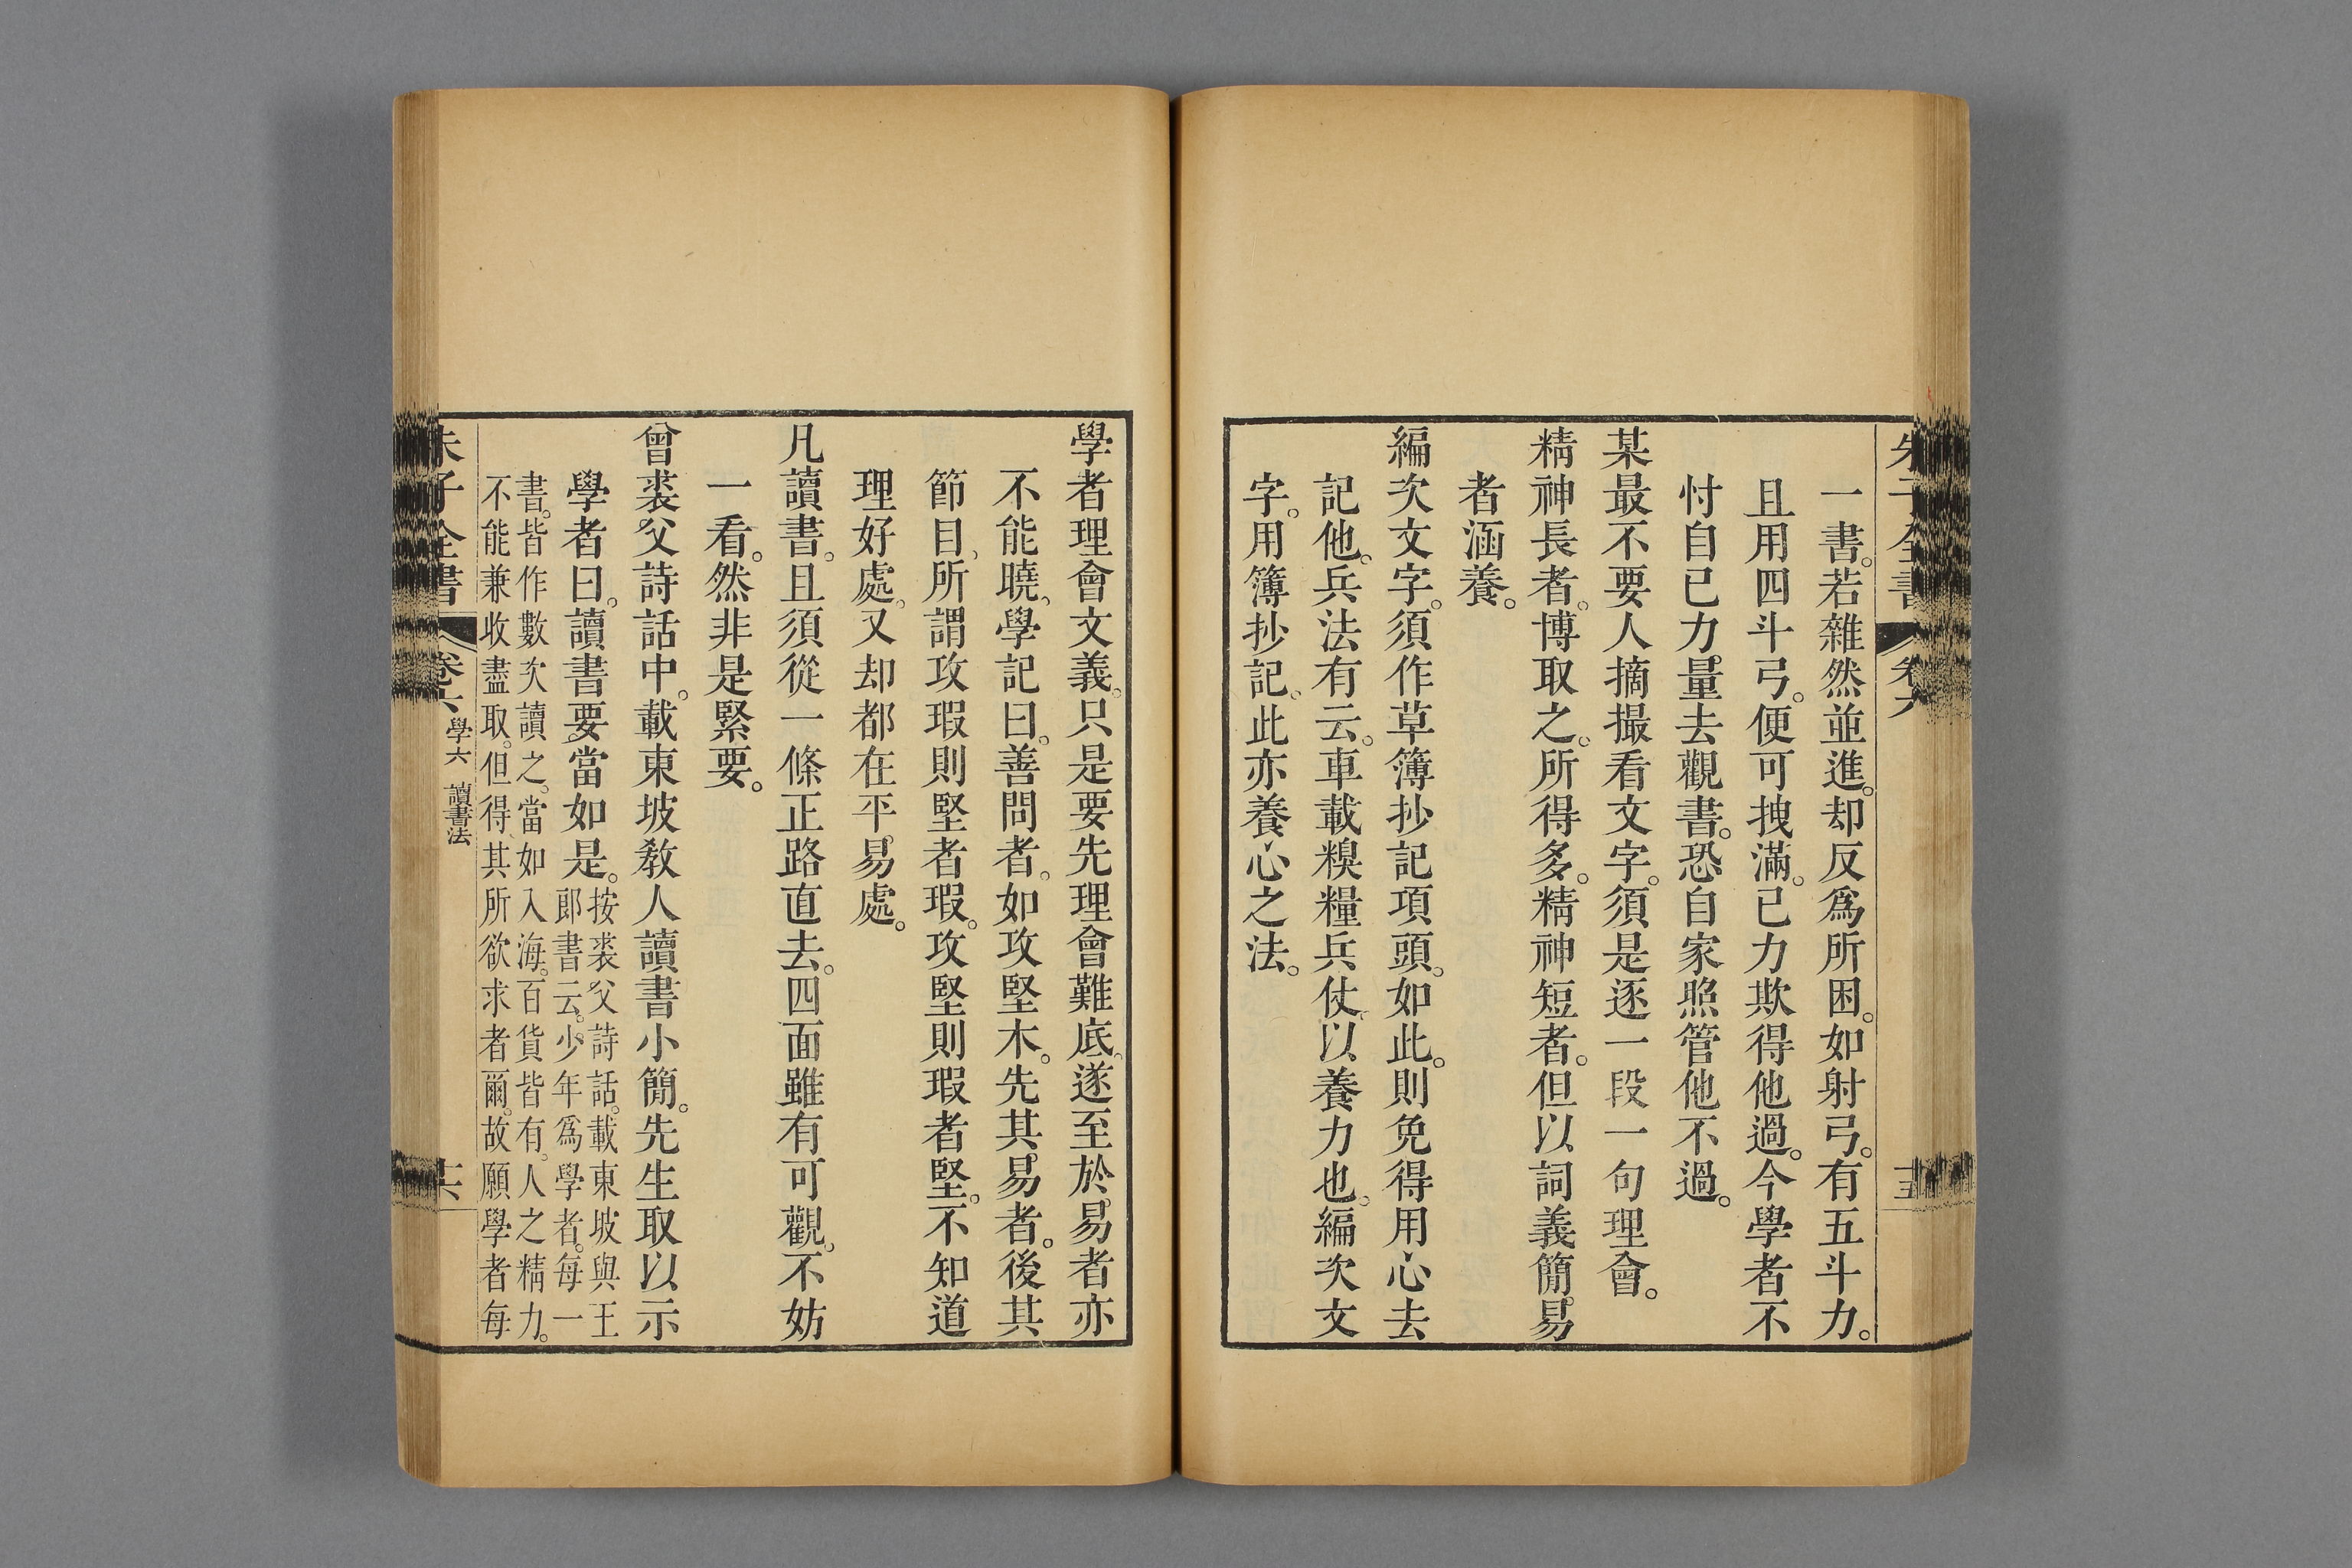 一書。若雜然並進。却反爲所困。如射弓。有五斗力。
且用四斗弓。便可拽滿。己力欺得他過。今學者不
忖自己力。量去觀書。恐自家照管他不過。
某最不要人摘撮看文字。須是逐一段一句理會。
精神長者。博取之。所得多。精神短者。但以詞義簡。易
者涵養。
編次文字。須作草簿抄記項頭。如此。則免得用心去
記他。兵法有云。車載糗糧兵仗。以養力也。編次文
字。用簿抄記。此亦養心之法。
朱子全書
卷六
十五
學者理會文義。只是要先理會難底。遂至於。易者亦
不能曉。學記曰。善問者。如攻堅木。先其。易者。後其
節目、所謂攻瑕則堅者瑕。攻堅則瑕者堅。不知道
理好處。又却都在平。易處。
凡讀書。且須從一條正路直去。四面雖有可觀。不妨
一看。然非是緊要。
曾裘父詩話中。載東坡敎人讀書小簡。先生取以示
學者曰。讀書要。當如是。
按裘父詩話。載東坡與王
郎書云。少年爲學者。每一
書。皆作數次讀之。當如入海。百貨皆有。人之精力。
不能兼收盡取。但得、其所欲求者爾。故願學者每
朱子全書
卷六
學六
讀書法
十六